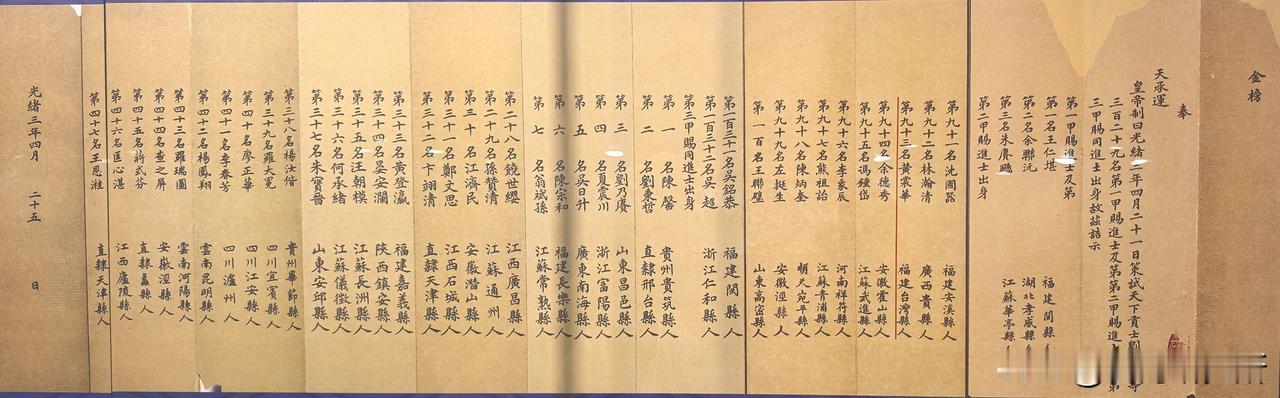 金榜
奉
天承運
皇帝制曰光緒三年四月二十一日策試天下貢士劉
三百二十九名第一甲賜進士及第第二甲賜進士
三甲賜同進士出身故茲誥示
第一甲賜進士及第
第一名王仁堪 福建閩縣人
第二名余聯沅 湖北孝感縣人
第三名朱賡颺 江蘇華亭縣人
第二甲賜進士出身
第九十一名沈國器 福建安溪縣人
第九十二名林瀚清 廣西貴縣人
第九十三名黃裳華 福建台灣縣人
第九十四名余德秀 安徽霍山縣人
第九十五名馮鍾岱 江蘇武進縣人
第九十六名李家辰 河南祥符縣人
第九十七名熊祖詒 江蘇青浦縣人
第九十八名陳炳奎 順天宛平縣人
第九十九名左挺生 安徽涇縣人
第一百名王聯璧 山東高密縣人
第一百三十一名吳銘恭 福建閩縣人
第一百三十二名吳超 浙江仁和縣人
第三甲賜同進士出身
第一名陳馨 貴州貴筑縣人
第二名劉秉哲 直隸邢台縣人
第三名劉乃賡 山東昌邑縣人
第四名夏震川 浙江富陽縣人
第五名吳日升 廣東南海縣人
第六名陳宗和 福建長樂縣人
第七名翁斌孫 江蘇常熟縣人
第二十八名饒世纓 江西廣昌縣人
第二十九名孫贊清 江蘇通州人
第三十名江濟民 安徽潛山縣人
第三十一名鄭文思 江西石城縣人
第三十二名卞翊清 直隸天津縣人
第三十三名黃登瀛 福建嘉義縣人
第三十四名晏安瀾 陝西鎮安縣人
第三十五名汪朝模 江蘇長洲縣人
第三十六名何承緒 江蘇儀徵縣人
第三十七名朱寶書 山東安邱縣人
第三十八名楊汝偕 貴州畢節縣人
第三十九名羅大冕 四川宜賓縣人
第四十名廖正華 四川江安縣人
第四十一名李春芳 四川瀘州人
第四十二名楊鳳翔 雲南昆明縣人
第四十三名羅瑞圖 雲南河陽縣人
第四十四名查之屏 安徽涇縣人
第四十五名蔣式芬 直隸蠡縣人
第四十六名匡心湛 江西廬陵縣人
第四十七名王恩湛 直隸天津縣人
光緒三年四月 二十五 日